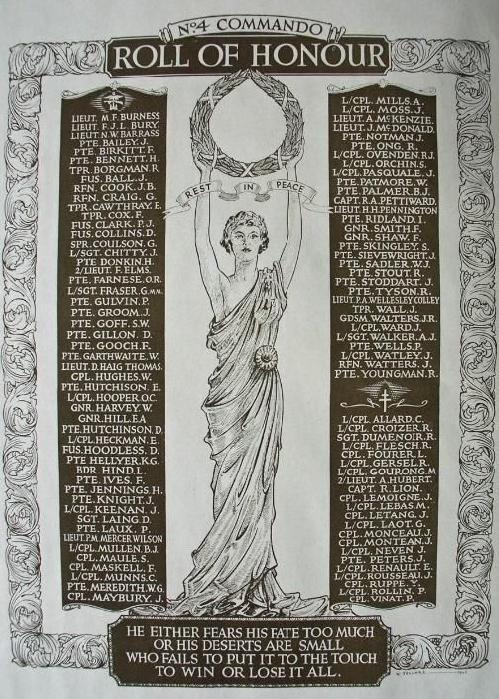 Nº4 COMMANDO
ROLL OF HONOUR
REST IN PEACE
LIEUT. M.F. BURNESS
LIEUT. F.J.L. BURY.
LIEUT. N.W. BARRASS
PTE. BAILEY. J.
PTE. BIRKITT. F.
PTE. BENNETT. H.
TPR. BORGMAN. R
FUS. BALL. J.
RFN. COOK. J.B.
RFN. CRAIG. G.
TPR. CAWTHRAY. E.
TPR. COX. F.
FUS. CLARK. P.J.
FUS. COLLINS. D.
SPR. COULSON. G.
L/SGT. CHITTY. J.
PTE DONKIN. H.
2/LIEUT. F. ELMS.
PTE. FARNESE. O.R.
L/SGT. FRASER. G. M.M.
PTE. GULVIN. P.
PTE. GROOM. J.
PTE. GOFF. S.W.
PTE. GILLON. D.
PTE. GOOCH. F.
PTE. GARTHWAITE. W.
LIEUT. D. HAIG THOMAS.
CPL. HUGHES. W.
PTE. HUTCHISON. E.
L/CPL. HOOPER. O.C.
GNR. HARVEY. W.
GNR. HILL. E.A
PTE. HUTCHINSON. D.
L/CPL. HECKMAN. E.
FUS. HOODLESS. D.
PTE HELLYER. K.G.
BDR HIND. L.
PTE. IVES. F.
PTE. JENNINGS. H.
PTE. KNIGHT. J.
L/CPL. KEENAN. J.
SGT. LAING. D.
PTE. LAUX. P.
LIEUT. P.M. MERCER WILSON
L/CPL. MULLEN. B.J.
CPL. MAULE. S.
CPL. MASKELL. F.
L/CPL. MUNNS. C.
PTE. MEREDITH. W.G.
CPL. MAYBURY. J.
L/CPL. MILLS. A.
L/CPL. MOSS. J.
LIEUT. A. McKENZIE.
LIEUT. J. McDONALD.
PTE. NOTMAN. J.
PTE. ONG. R.
L/CPL. OVENDEN. R.J.
L/CPL. ORCHIN. S.
L/CPL. PASQUALE. J.
PTE. PATMORE. W.
PTE. PALMER. B.J.
CAPT. R.A. PETTIWARD.
LIEUT. H.H. PENNINGTON
PTE. RIDLAND. I.
GNR. SMITH. F.
GNR. SHAW. F.
PTE. SKINGLEY. S.
PTE. SIEVEWRIGHT. J.
PTE. SADLER. W.J.
PTE. STOUT. R.
PTE. STODDART. J.
PTE. TYSON. R.
LIEUT. P.A. WELLESLEY COLLEY
TPR. WALL. J.
GDSM. WALTERS. J.R.
L/CPL. WARD. J.
L/SGT. WALKER. A.J.
PTE. WELLS. P.
L/CPL. WATLEY. J.
RFN. WATTERS. J.
PTE. YOUNGMAN. R.
L/CPL. ALLARD. C.
L/CPL. CROIZER. R.
SGT. DUMENOIR. R.
L/CPL. FLESCH. R.
CPL. FOURER. L.
L/CPL. GERSEL. R.
L/CPL. GOUJONG. M
2/LIEUT. A. HUBERT.
CAPT. R. LION.
CPL. LEMOIGNE. J.
L/CPL. LEBAS. M.
CPL. LETANG. J.
L/CPL. LAOT. G.
CPL. MONCEAU. J.
CPL. MONTEAN. J.
L/CPL. NEVEN J.
PTE. PETERS. J.
L/CPL. RENAULT. E.
L/CPL. ROUSSEAU. J.
CPL. RUPPE. Y.
L/CPL. ROLLIN. P.
CPL. VINAT. P.
HE EITHER FEARS HIS FATE TOO MUCH
OR HIS DESERTS ARE SMALL
WHO FAILS TO PUT IT TO THE TOUCH
TO WIN OR LOSE IT ALL.